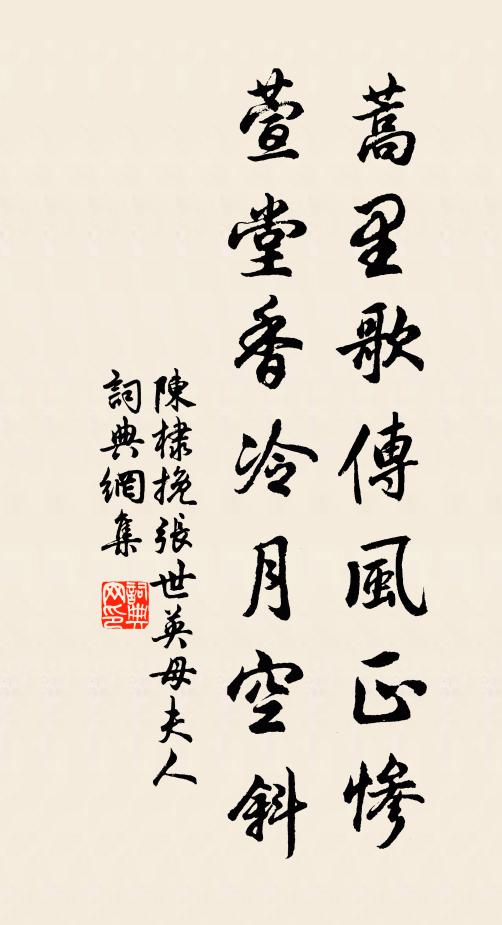 蒿里歌傳風正慘
萱堂香冷月空斜
陳棣挽張世英母夫人
詞典網集
詞典
网印